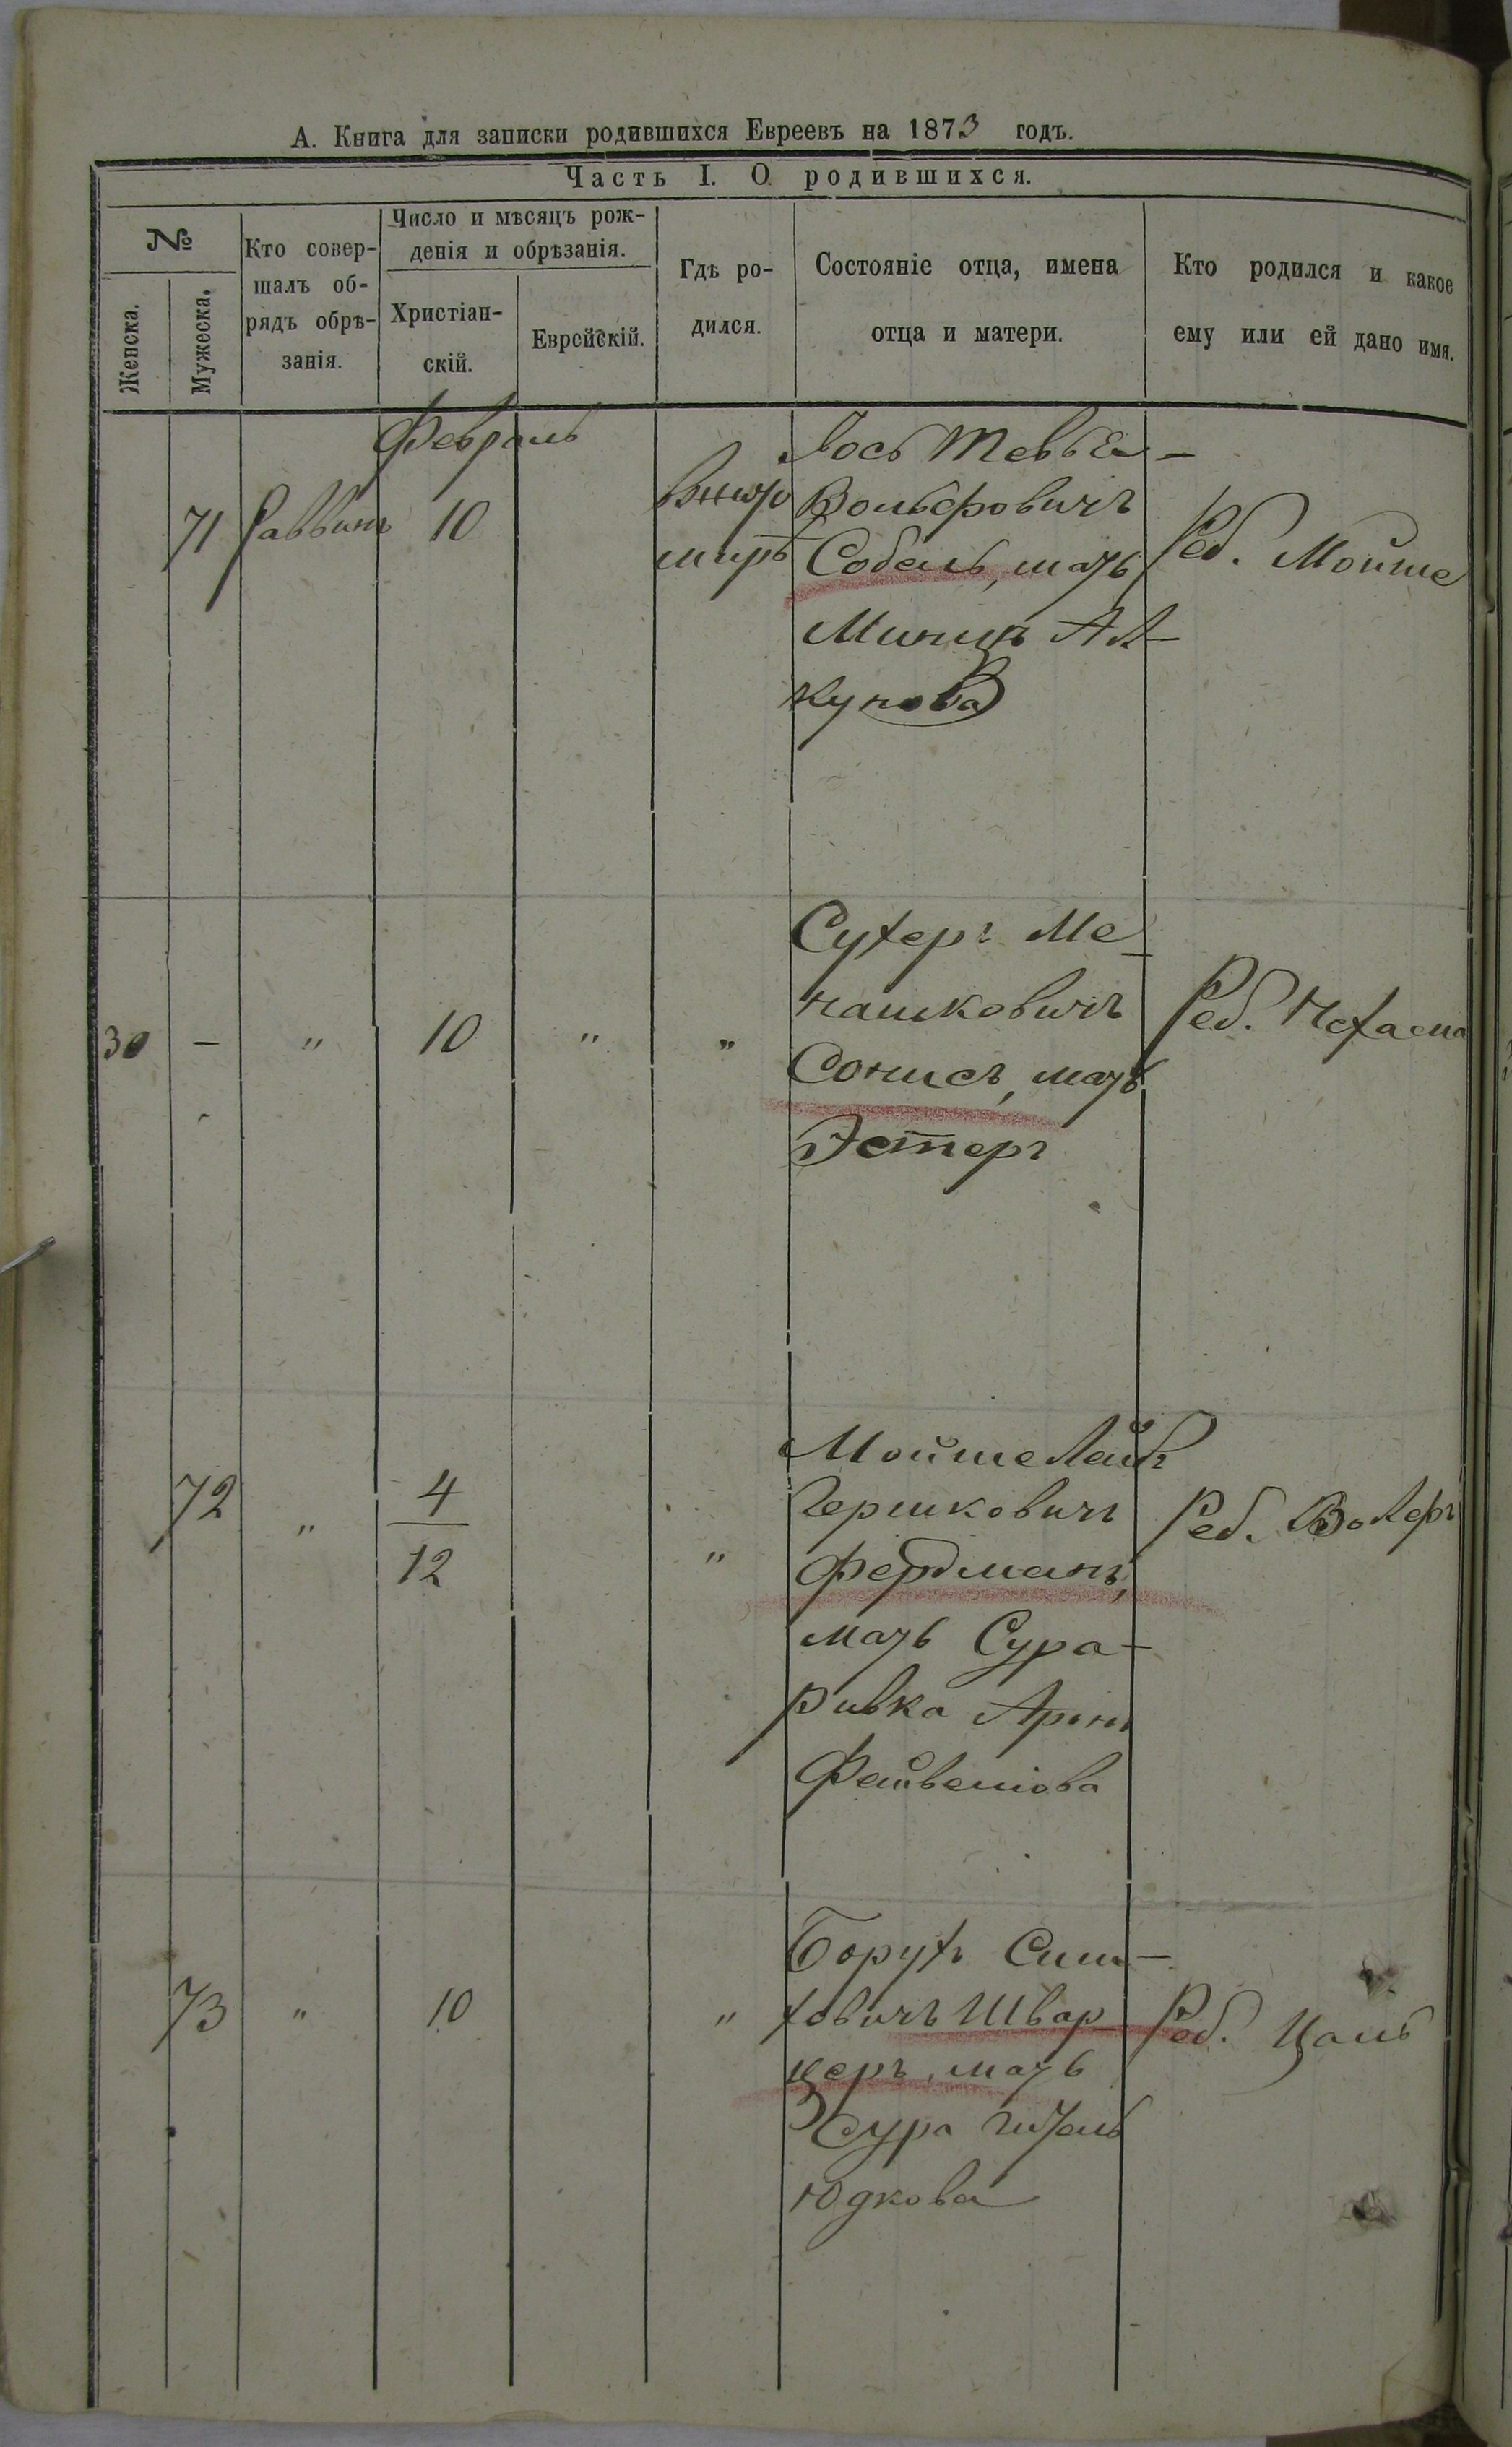 А. Книга для записки родившихся Евреевъ на 1873 годъ.
Часть I. О родившихся.
№
Женска.
Мужеска.
Кто совер-
шалъ об-
рядъ обрѣ-
занія.
Число и мѣсяцъ рож-
денія и обрѣзанія.
Христіан-
скій.
Еврейскій.
Гдѣ ро-
дился.
Состояніе отца, имена
отца и матери.
Кто родился и какое
ему или ей дано имя.
Февраль
71 Раввинъ 10
Іось Тевье-
Вольфовичъ
Собель, мать
кунова
Реб. Мойше
30 — " 10 " "
Сухеръ Ме-
нашковичъ
Сонисъ, мать
Эстеръ
Реб. Нехама
72 " 4
12
"
Мойше Лейб
Гершковичъ
Фердманъ,
мать Сура-
Ривка Аронъ
Файвешова
Реб. Волеръ
73 " 10 "
Борухъ Сим-
ховичъ Швар
церъ, мать
Сура Гитель
Юдкова
Реб. Цаль